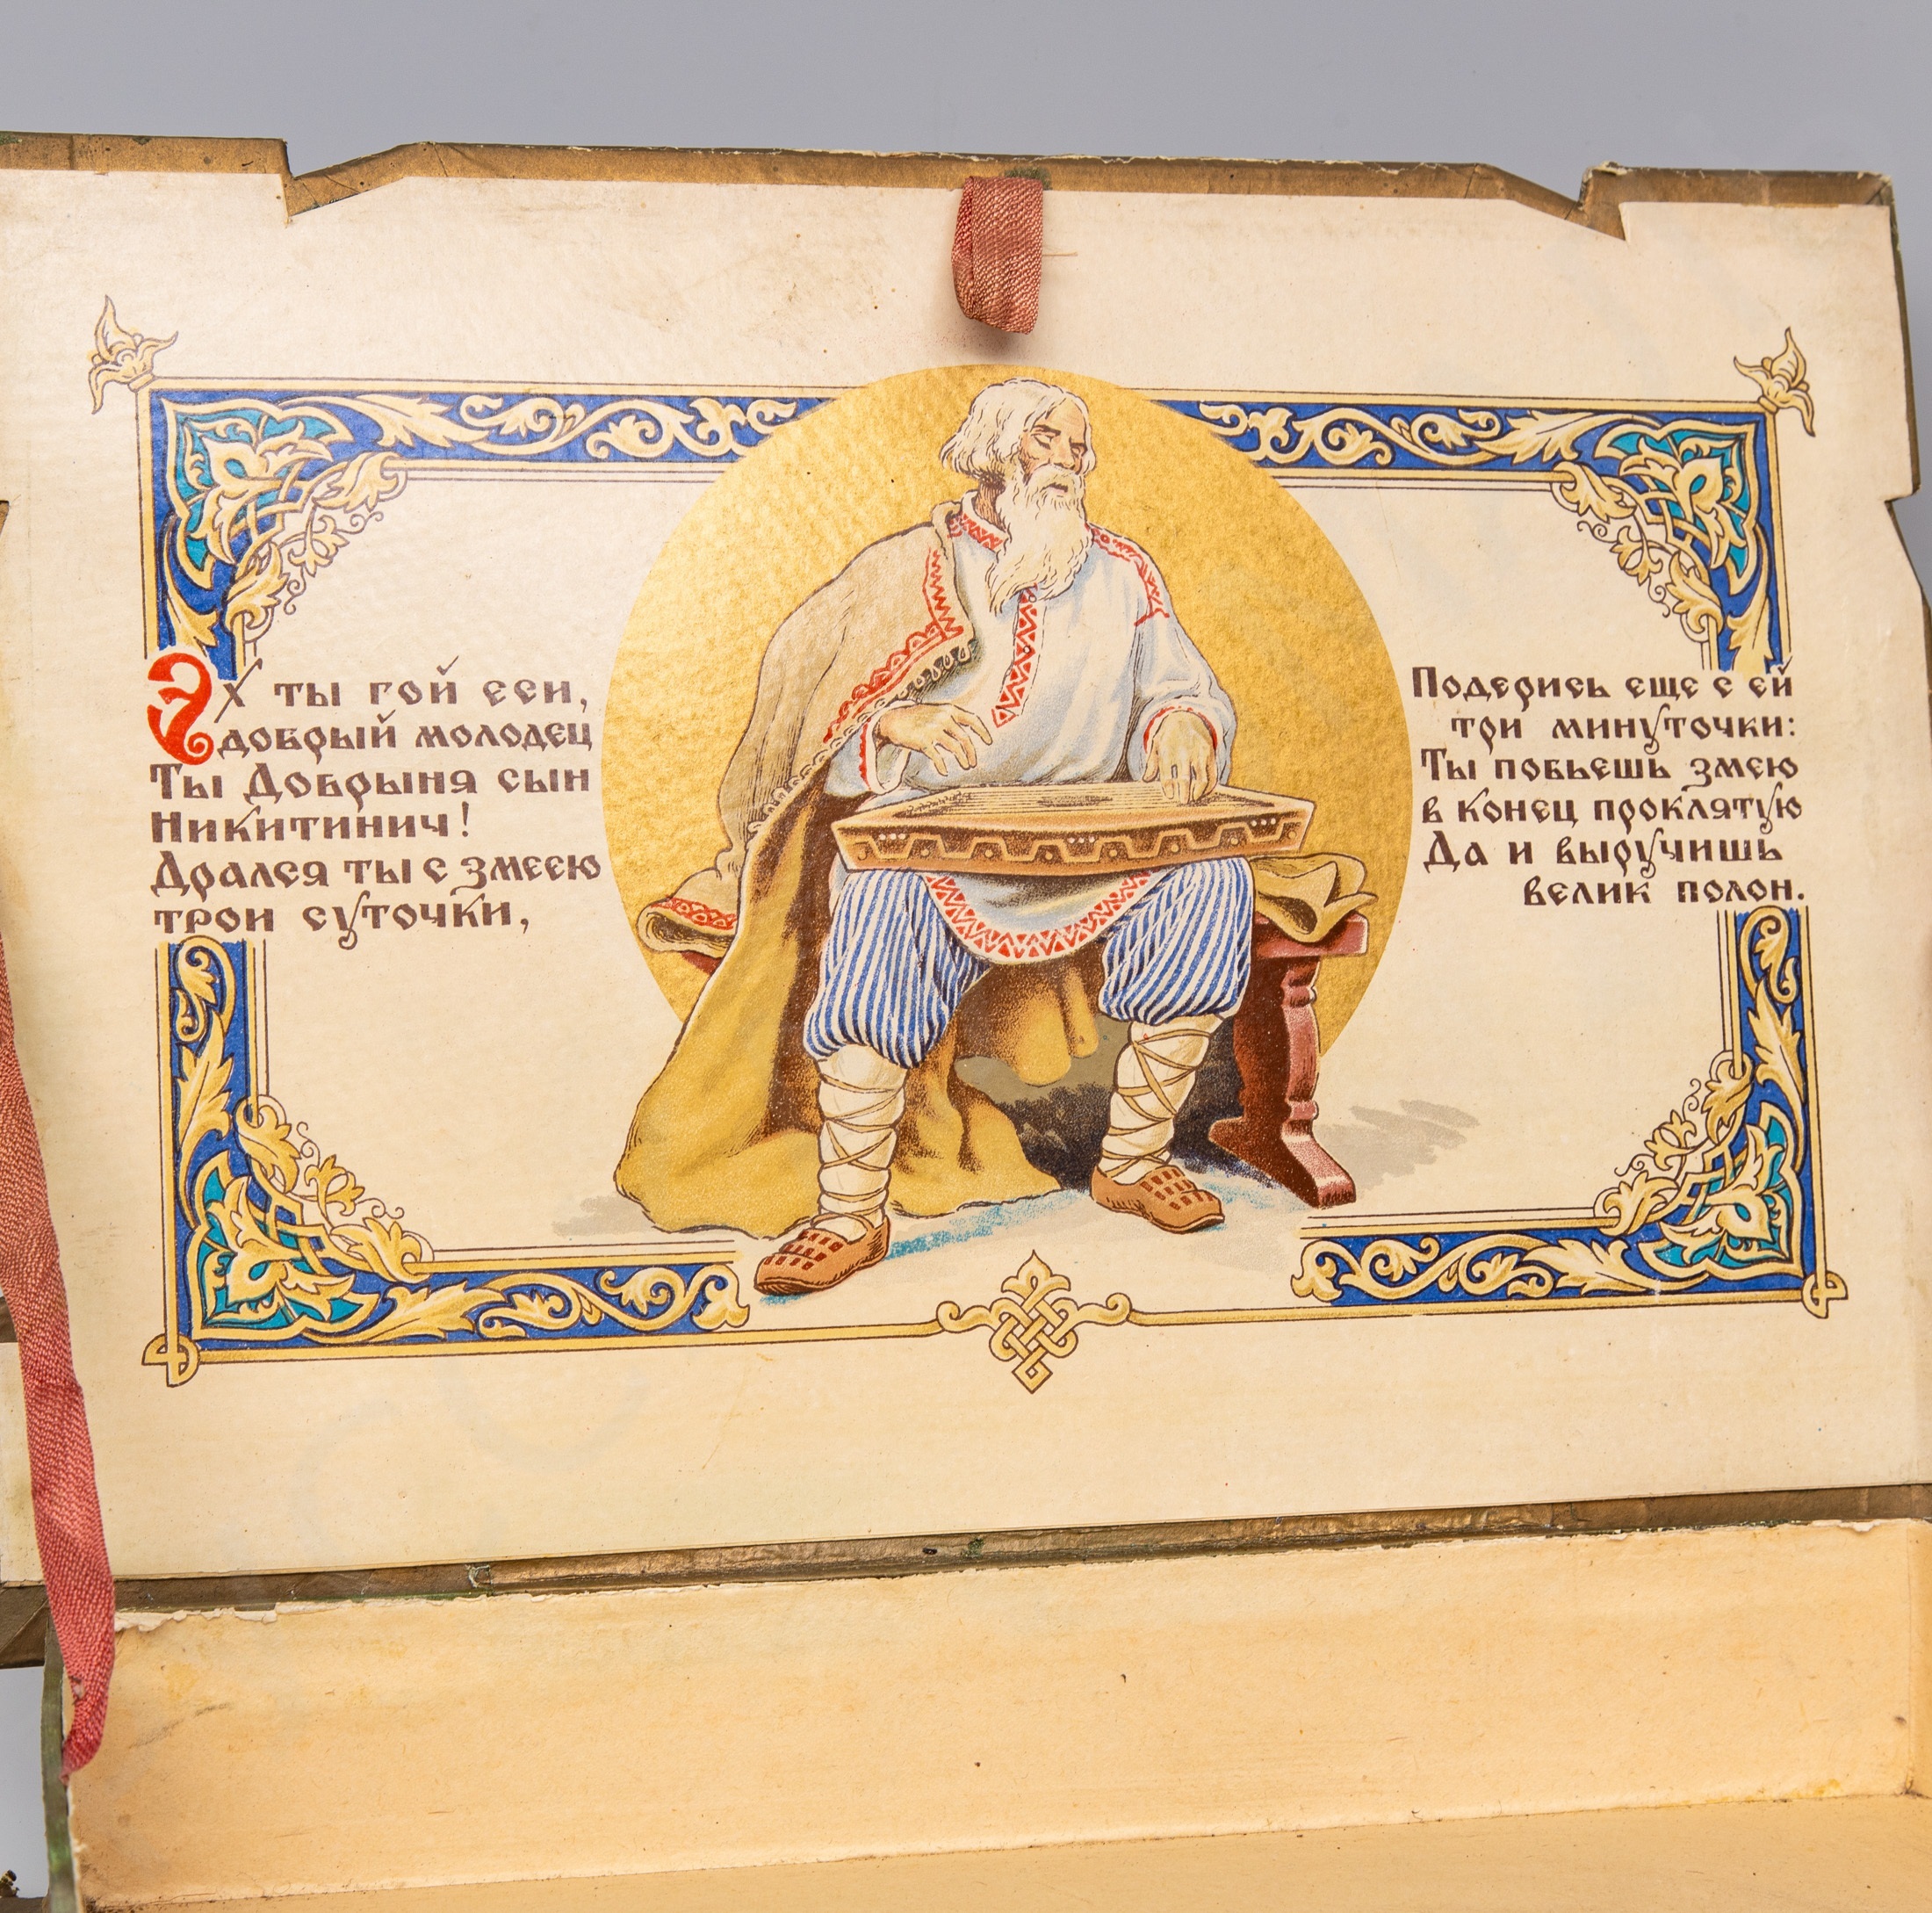 Эх ты гой еси,
добрый молодец
Ты Добрыня сын
Никитинич!
Дрался ты с змеею
трои суточки,
Подерись еще с ей
три минуточки:
Ты побьешь змею
в конец проклятую
Да и выручишь
велик полон.